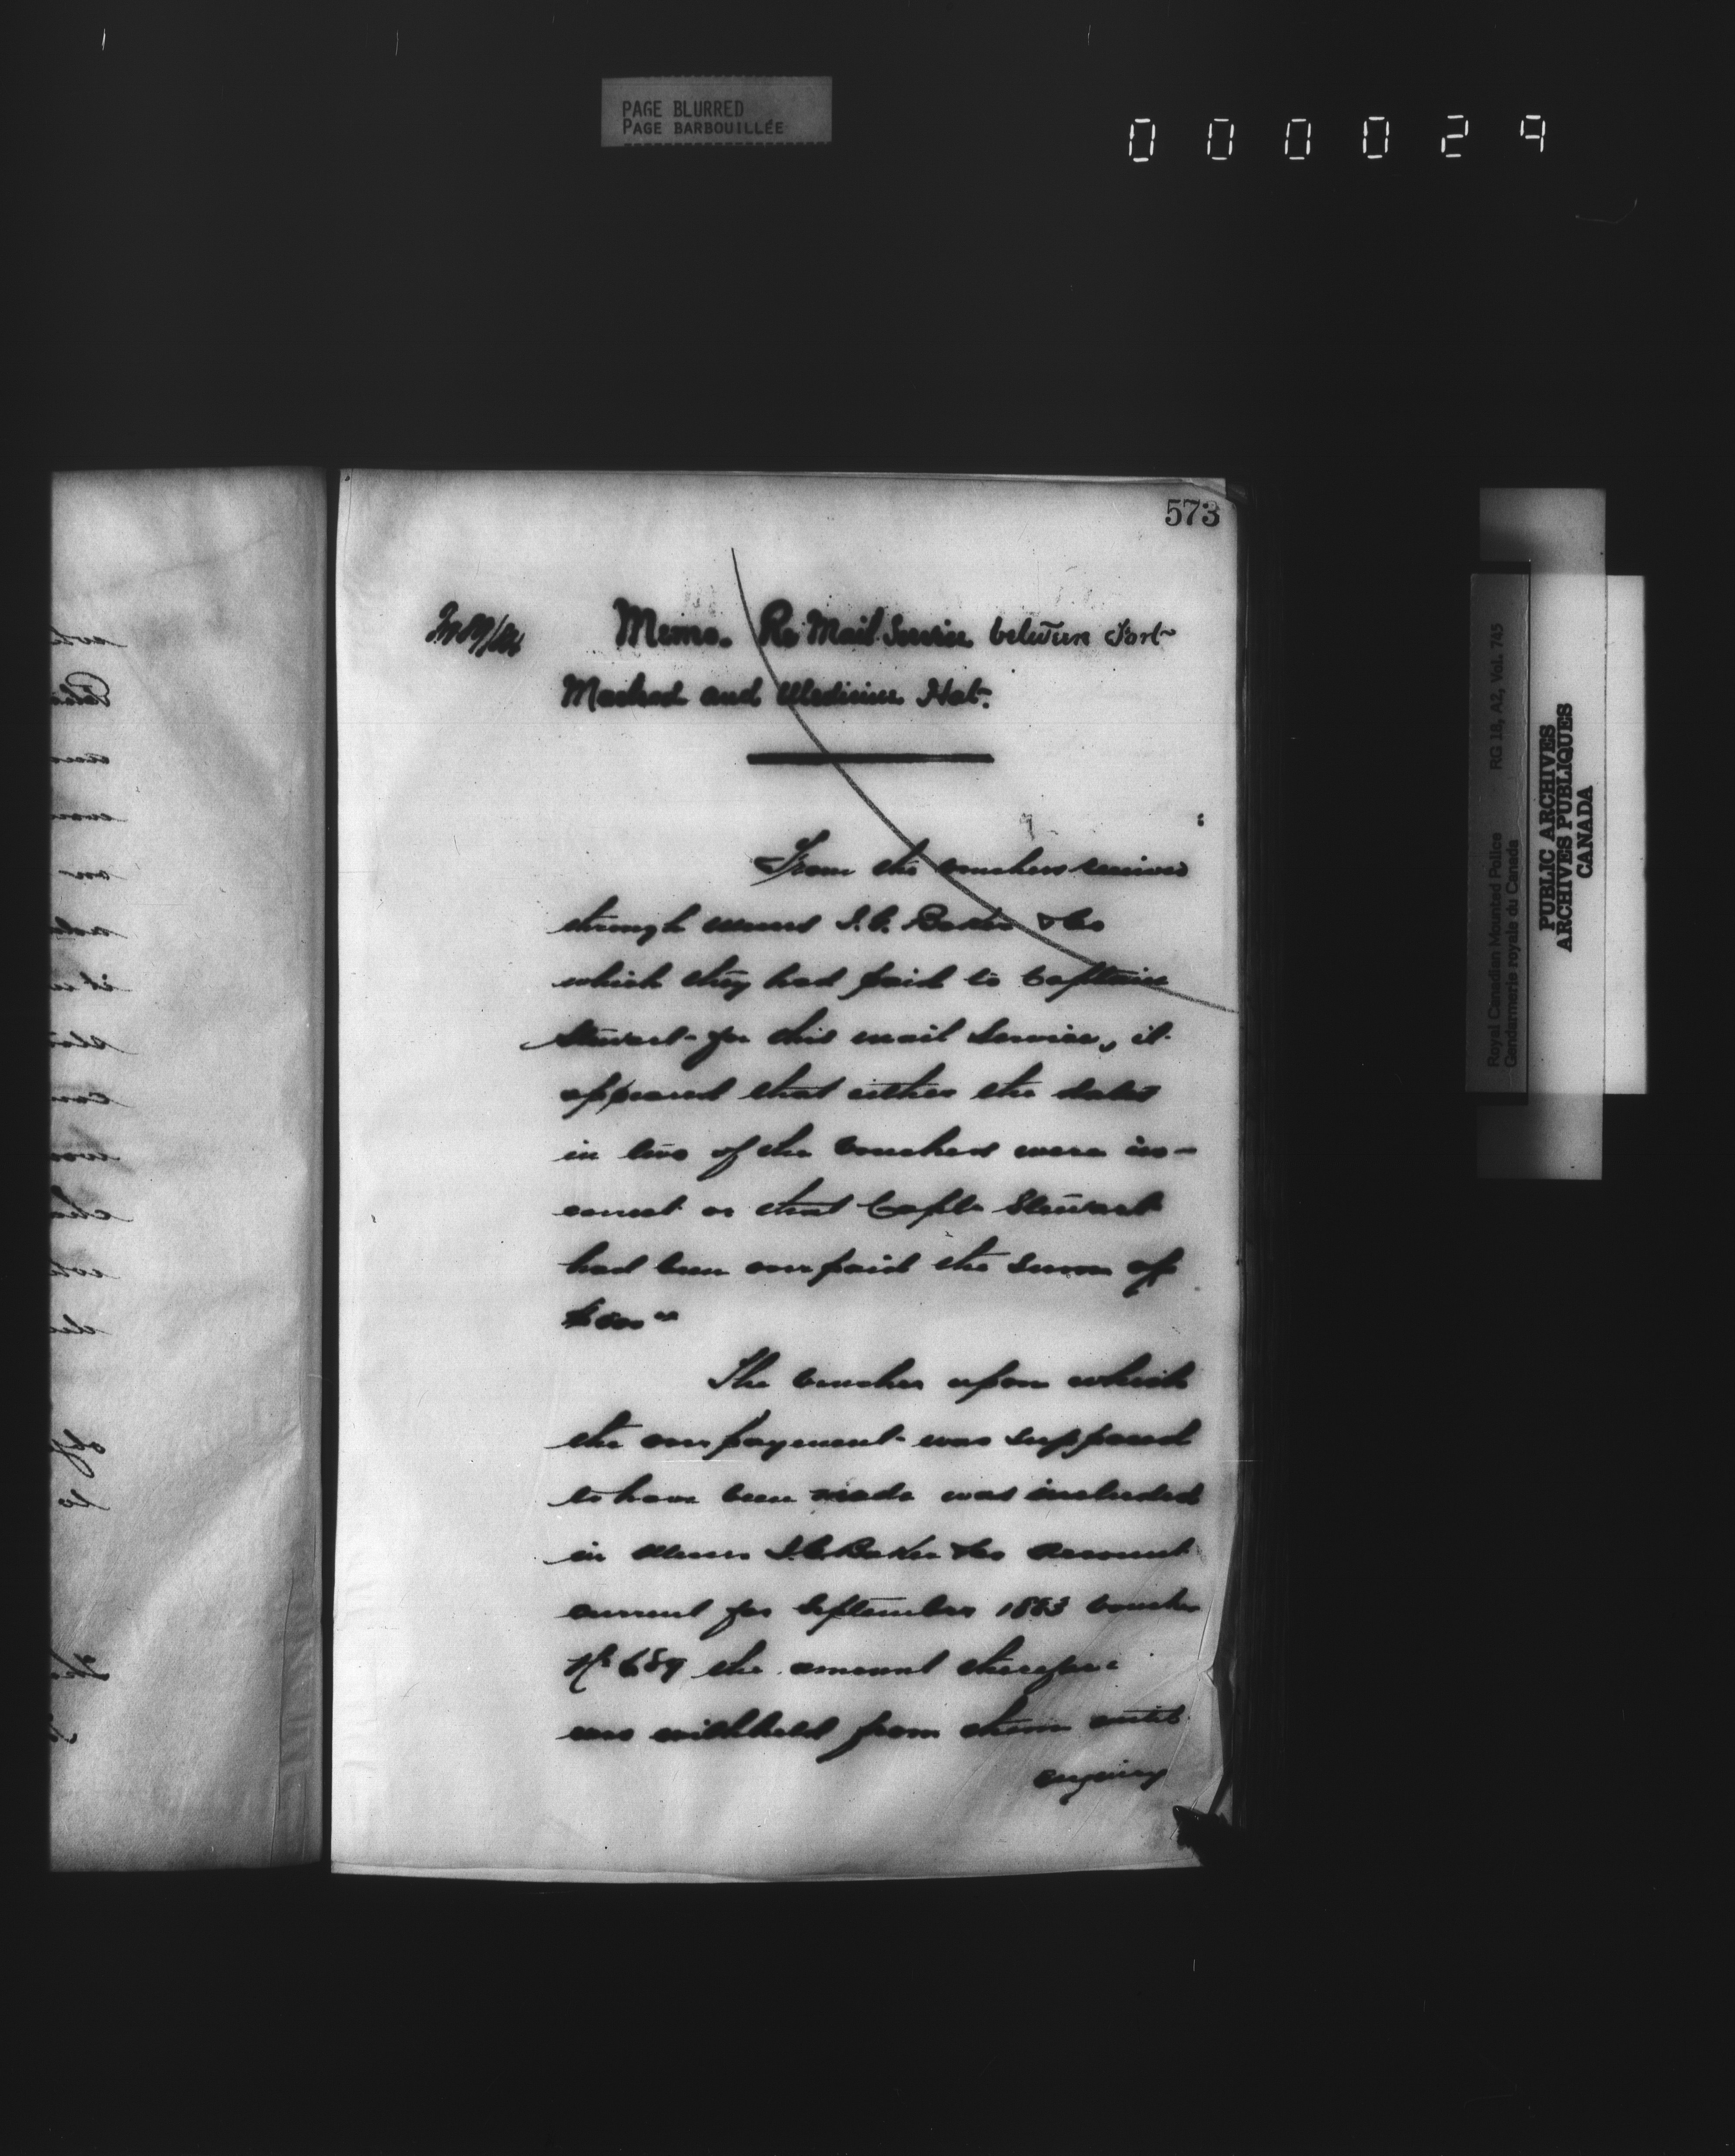 PAGE BLURRED
PAGE BARBOUILLÉE
000029
573
Memo. Re Mail Service between Fort
Macleod and Medicine Hat.
From the vouchers received
through Messrs I. G. Baker & Co
which they had paid to Captain
Stewart for this mail Service, it
appeared that either the dates
in two of the vouchers were in-
correct or that Capt. Stewart
had been overpaid the sum of
The voucher upon which
the overpayment was supposed
to have been made was included
in Messrs I. G. Baker & Co account
current for September 1883 voucher
No 689 the amount therefore
was withheld from them until
enquiry
Royal Canadian Mounted Police RG 18, A2, Vol. 745
Gendarmerie royale du Canada
PUBLIC ARCHIVES
ARCHIVES PUBLIQUES
CANADA